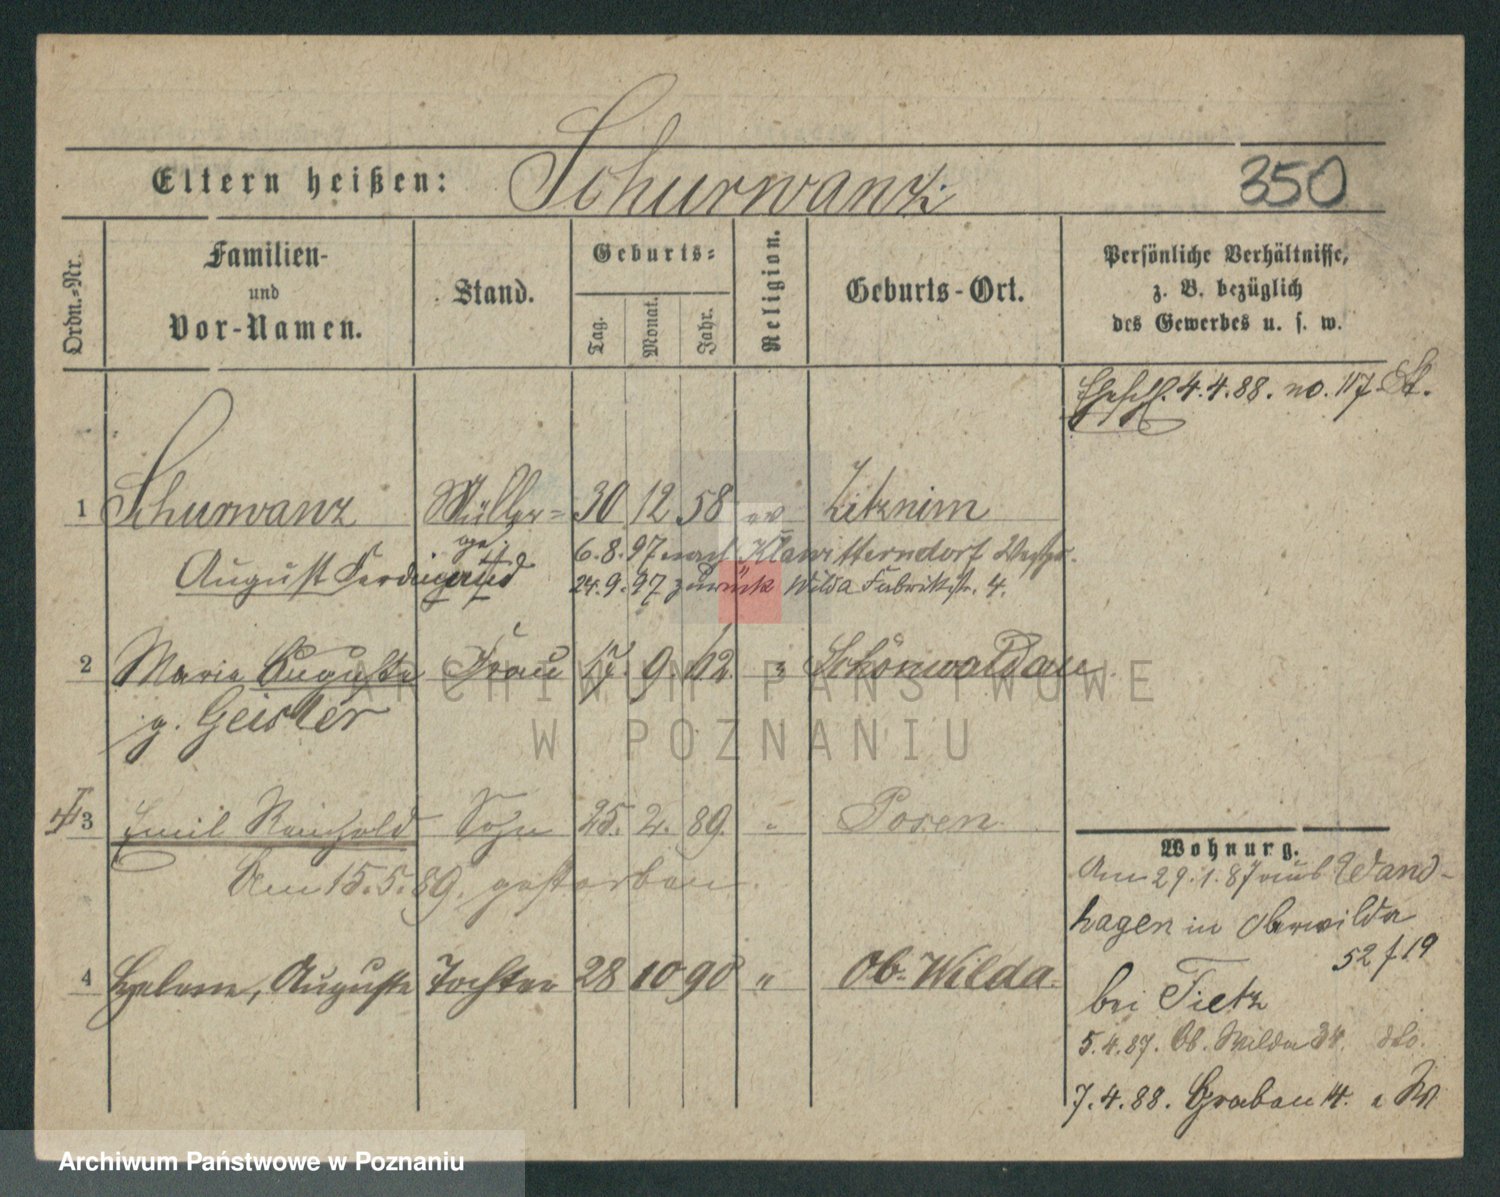 Eltern heißen: Schurwanz 350
Ordn.-Nr.
Familien-
und
Vor-Namen.
Stand.
Geburts-
Tag. Monat. Jahr.
Religion.
Geburts-Ort.
Persönliche Verhältnisse,
z. B. bezüglich
des Gewerbes u. s. w.
4.4.88. no. 117 St.
1 Schurwanz Müller- 30 12 58 ev Zitznim
August Ferdinand
6.8.97 nach Klawitterndorf Westpr.
24.9.97 zurück Wilda Fabrikstr. 4.
2 Maria Auguste Frau 17. 9. 62 " Schönwaldau
g. Geister
3 Emil Reinhold Sohn 25. 2. 89. " Posen
Am 15.5.89. gestorben
4 Helene, Auguste Tochter 28 10 90 " Ob. Wilda.
Wohnung.
Am 29.1.87 aus Wand-
hagen in Oberwilda
52 f. 19
bei Tietz
5.4.87. Ob. Wilda 34. dto.
7.4.88. Graben 14. W
ARCHIWUM PAŃSTWOWE
W POZNANIU
Archiwum Państwowe w Poznaniu